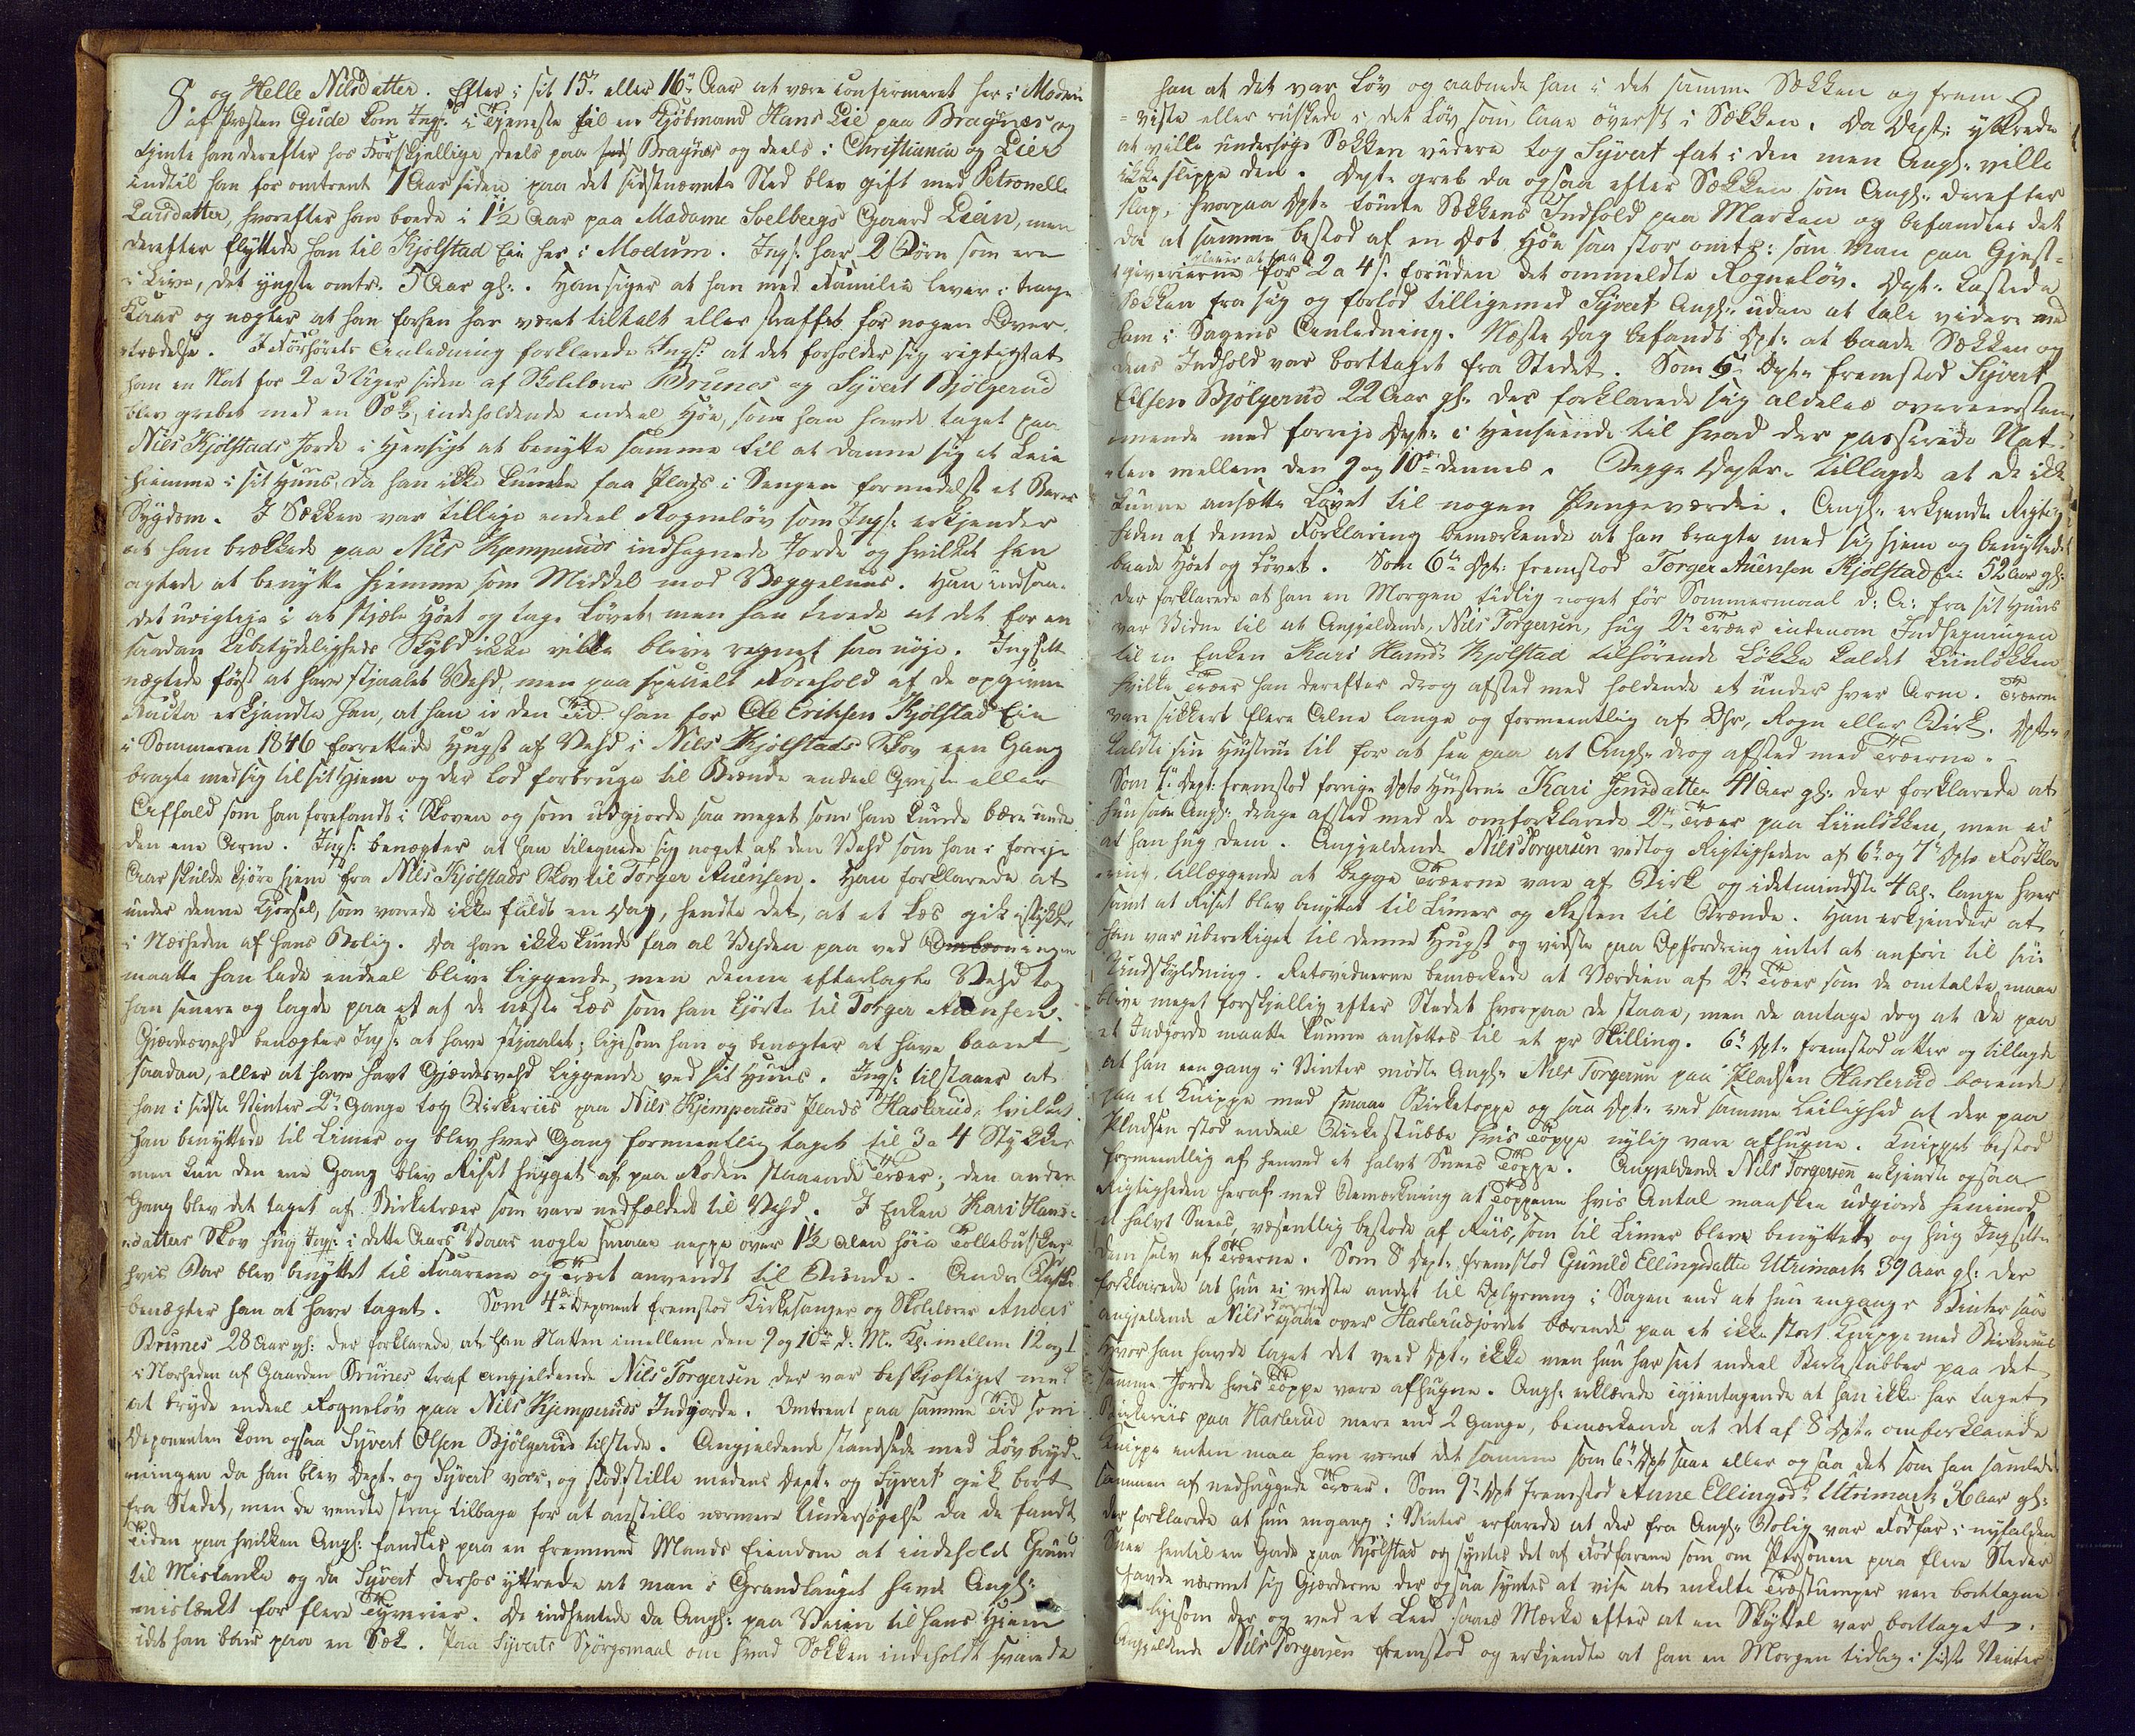 8. og Helle Nilsdatter. Efter i sit 15de eller 16de Aar at være confirmeret her i Modum
af Præsten Gude kom Ings: i Tjeneste til en Kjøbmand Hans Lie paa Bragnæs og
tjente han derefter hos Forskjellige deels paa Bragnæs og deels i Christiania og Lier
indtil han for omtrent 7 Aar siden paa det sidstnævnte Sted blev gift med Petronelle
Larsdatter, hvorefter han boede i 1½ Aar paa Madame Soelbergs Gaard Leien, men
derefter flyttede han til Kjølstad Eie her i Modum. Ings: har 2 Børn som ere
i Live, det yngste omtr. 5 Aar gl:. Han siger at han med Familie lever i trange
Kaar og nægter at han forhen har været tiltalt eller straffet for nogen Over-
trædelse. I Forhørets Anledning forklarede Ings: at det forholder sig rigtigt at
han en Nat for 2 a 3 Uger siden af Skolelærer Brunes og Syvert Bjölgerud
blev grebet med en Sæk, indeholdende endeel Høe, som han havde taget paa
Nils Kjölstads Jorde i Hensigt at benytte samme til at danne sig et Leie
hjemme i sit Huus, da han ikke kunde faa Plads i Sengen formedelst et Barns
Sygdom. I Sækken var tillige endeel Rogneløv som Ings: erkjender
at han brækkede paa Nils Kjemperuds indhegnede Jorde og hvilket han
agtede at benytte hjemme som Middel mod Væggeluus. Han indsaa
det urigtige i at stjæle Høet og tage Løvet, men han troede at det for en
saadan Ubetydeligheds Skyld ikke ville blive regnet saa nøje. Ingsidte
nægtede først at have stjaalet Vehd, men paa specielt Forehold af de opgivne
Facta erkjendte han, at han i den Tid han for Ole Eriksen Kjölstad Eie
i Sommeren 1846 forrettede Hugst af Vehd i Nils Kjölstads Skov een Gang
bragte med sig til sit Hjem og der lod forbruge til Brænde endeel Qviste eller
Affald som han forefandt i Skoven og som udgjorde saa meget som han kunde bære under
den ene Arm. Ings: benægter at han tilegnede sig noget af den Vehd som han i forrige
Aar skulde kjøre hjem fra Nils Kjölstads Skov til Torger Auensen. Han forklarede at
under denne Kjørsel, som varede ikke fuldt en Dag, hendte det, at et Læs gik istykker
i Nærheden af hans Bolig. Da han ikke kunde faa al Vehden paa ved
maatte han lade endeel blive liggende, men denne efterlagte Vehd tog
han senere og lagde paa et af de næste Læs som han kjørte til Torger Auensen.
Gjærdesvehd benægter Ings: at have stjaalet; ligesom han og benægter at have baaret
saadan, eller at have havt Gjærdesvehd liggende ved sit Huus. Ings: tilstaaer at
han i sidste Vinter 2de Gange tog Birkeriis paa Nils Kjemperuds Plads Haslerud, hvilket
han benyttede til Limer og blev hver Gang formeentlig taget til 3 a 4 Stykker
men kun den ene Gang blev Riset hugget af paa Roden staaende Træer; den anden
Gang blev det taget af Birketræer som vare nedfældede til Vehd. I Enken Kari Hans-
datters Skov hug Ings: i dette Aars Vaar nogle smaae neppe over 1½ Alen høie Tollebuske
hvis Bar blev benyttet til Faarene og Træet anvendt til Brænde. Andre
benægter han at have taget. Som 4de Deponent fremstod Kirkesanger og Skolelærer Anders
Brunes 28 Aar gl: der forklarede, at han Natten imellem den 9 og 10de d: M: Kl: imellem 12 og 1
i Nærheden af Gaarden Brunes traf angjeldende Nils Torgersen der var beskjæftiget med
at bryde endeel Rogneløv paa Nils Kjemperuds Indjorde. Omtrent paa samme Tid som
Deponenten kom ogsaa Syvert Olsen Bjölgerud tilstede. Angjeldende standsede med Løvbryd-
ningen da han blev Dept: og Syvert vaer, og stod stille medens Dept: og Syvert gik bort
fra Stedet, men de vendte strax tilbage for at anstille nærmere Undersøgelse da de fandt
Tiden paa hvilken Angj: fandtes paa en fremmed Mands Eiendom at indeholde Grund
til Mistanke og da Syvert derhos yttrede at man i Grandlauget havde Angj:
mistænkt for flere Tyverier. De indhentede da Angj: paa Veien til hans Hjem
idet han bar paa en Sæk. Paa Syverts Spørgsmaal om hvad Sækken indeholdt svarede
han at det var Løv og aabnede han i det samme Sækken og frem-
viste eller ruskede i det Løv som laae øverst i Sækken. Da Dept: yttrede
at ville undersøge Sækken videre tog Syvert fat i den men Angj: ville
ikke slippe den. Dept: greb da ogsaa efter Sækken som Angj: derefter
slap, hvorpaa Dpt: tømte Sækkens Indhold paa Marken og befandtes det
da at samme bestod af en Dot Høe saa stor omtr: som man paa Gjæst-
giverierne pleier at faa for 2 a 4 s. foruden det ommeldte Rogneløv. Dpt: kastede
Sækken fra sig og forlod tilligemed Syvert Angj: uden at tale videre med
ham i Sagens Anledning. Næste Dag befandt Dpt: at baade Sækken og
dens Indhold var borttaget fra Stedet. Som 5te Dpt: fremstod Syvert
Olsen Bjölgerud 22 Aar gl: der forklarede sig aldeles overeensstem-
mende med forrige Dpt: i Henseende til hvad der passerede Nat-
ten mellem den 9 og 10de dennes. Begge Depter: tillagde at de ikke
kunne ansætte Løvet til nogen Pengeværdie. Angj: erkjendte Rigtig-
heden af denne Forklaring bemærkende at han bragte med sig hjem og benyttede
baade Høet og Løvet. Som 6te Dpt: fremstod Torger Auensen Kjölstad Eie 52 Aar gl:
der forklarede at han en Morgen tidlig noget før Sommermaal d: A: fra sit Huus
var Vidne til at Angjeldende, Nils Torgersen, hug 2de Træer indenom Indhegningen
til en Enken Kari Hansd: Kjölstad tilhørende Løkke kaldet Liinløkken
hvilke Træer han derefter drog afsted med holdende et under hver Arm. Træerne
vare sikkert flere Alne lange og formeentlig af Ohr, Rogn eller Birk. Dpt:
kaldte sin Hustrue til for at see paa at Angj: drog afsted med Træerne.
Som 7de Dept: fremstod forrige Dpts Hustrue Kari Jensdatter 41 Aar gl: der forklarede at
hun saae Angj: drage afsted med de omforklarede 2de Træer paa Liinløkken, men ei
at han hug dem. Angjeldende Nils Torgersen vedtog Rigtigheden af 6te og 7de Dpts Forkla-
ring, tillæggende at begge Træerne vare af Birk og idetmindste 4 Al: lange hver
samt at Riset blev benyttet til Limer og Resten til Brænde. Han erkjender at
han var uberettiget til denne Hugst og vidste paa Opfordring intet at anføre til sin
Undskyldning. Retsvidnerne bemærkede at Værdien af 2de Træer som de omtalte, maae
blive meget forskjellig efter Stedet hvorpaa de staae, men de antage dog at de paa
et Indjorde maatte kunne ansættes til et pr Skilling. 6te Dpt: fremstod atter og tillagde
at han een gang i Vinter mødte Angj: Nils Torgersen paa Pladsen Haslerud bærende
paa et Knippe med smaae Birketoppe og saa Dpt: ved samme Leilighed at der paa
Pladsen stod endeel Birkestubbe hvis Toppe nylig vare afhugne. Knippet bestod
formeentlig af henved et halvt Snees Toppe. Angjeldende Nils Torgersen erkjendte ogsaa
Rigtigheden heraf med Bemærkning at Toppene hvis Antal maaskee udgjorde henimod
et halvt Snees, væsentlig bestode af Riis, som til Limer bleve benyttede og hug Ingsidte
dem selv af Træerne. Som 8 Dept: fremstod Gunild Ellingsdatter Utrimark 39 Aar gl: der
forklarede at hun ei vidste andet til Oplysning i Sagen end at hun engang i Vinter saae
angjeldende Nils Torgersen gaae over Haslerudjordet bærende paa et ikke stort Knippe med Birkeriis
Hvor han havde taget det veed Dpt: ikke men hun har seet endeel Birkestubber paa det
samme Jorde hvis Toppe vare afhugne. Angj: erklærede igjentagende at han ikke har taget
Birkeriis paa Haslerud mere end 2 Gange, bemærkende at det af 8 Dpt: omforklarede
Knippe enten maa have været det samme som 6te Dpt saae eller ogsaa det som han samlede
sammen af nedhuggede Træer. Som 9de Dpt fremstod Anne Ellingsdr Utrimark 36 Aar gl:
der forklarede at hun engang i Vinter erfarede at der fra Angj: Bolig var Fodfar i nyfalden
Snee hentil en Gade paa Kjölstad og syntes det af Fodfarene som om Personen paa flere Steder
havde nærmet sig Gjærderne der ogsaa syntes at vise at enkelte Træstumper vare borttagne
ligesom der og ved et Leed saaes Mærke efter at en Skyttel var borttaget.
Angjeldende Nils Torgersen fremstod og erkjendte at han en Morgen tidlig i sidste Vinter